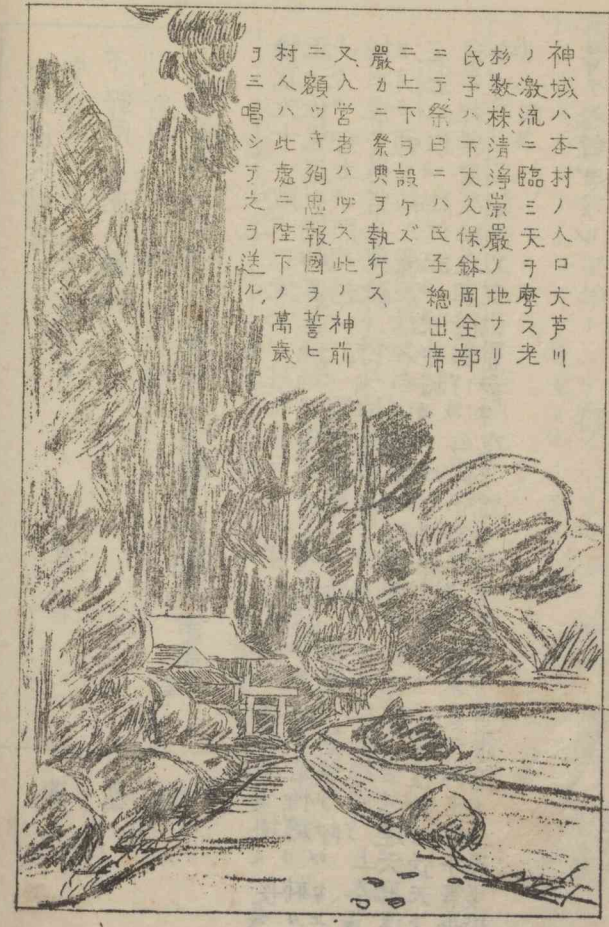 神域ハ本村ノ入口大芦川
ノ激流ニ臨ミ天ヲ摩ス老
杉数株、清浄崇厳ノ地ナリ
氏子ハ下大久保鉢岡全部
ニテ、祭日ニハ氏子總出席
ニ上下ヲ設ケズ
嚴カニ祭典ヲ執行ス、
又、入営者ハ必ス此ノ神前
ニ額ツキ殉忠報國ヲ誓ヒ
村人ハ此處ニ陛下ノ萬歳
ヲ三唱シテ之ヲ送ル、